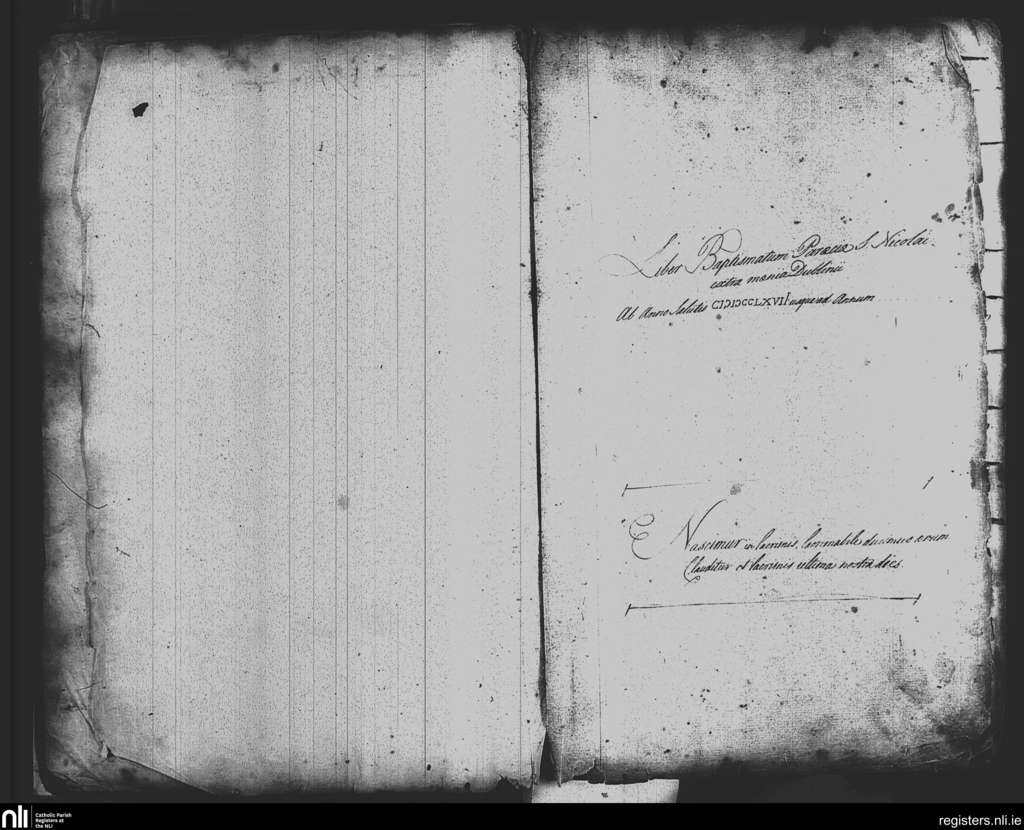 Liber Baptismatum Parœciæ S. Nicolai
extra mœnia Dublinii
Ab Anno Salutis CIƆIƆCCLXVII usque ad Annum
Nascimur in lacrimis, lacrimabile ducimus ævum
Clauditur et lacrimis ultima nostra dies.
nli
Catholic Parish
Registers at
the NLI
registers.nli.ie